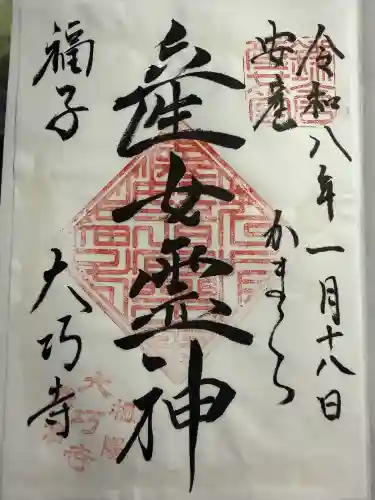 令和八年一月十八日
安産
かまくら
産女霊神
福子
大巧寺